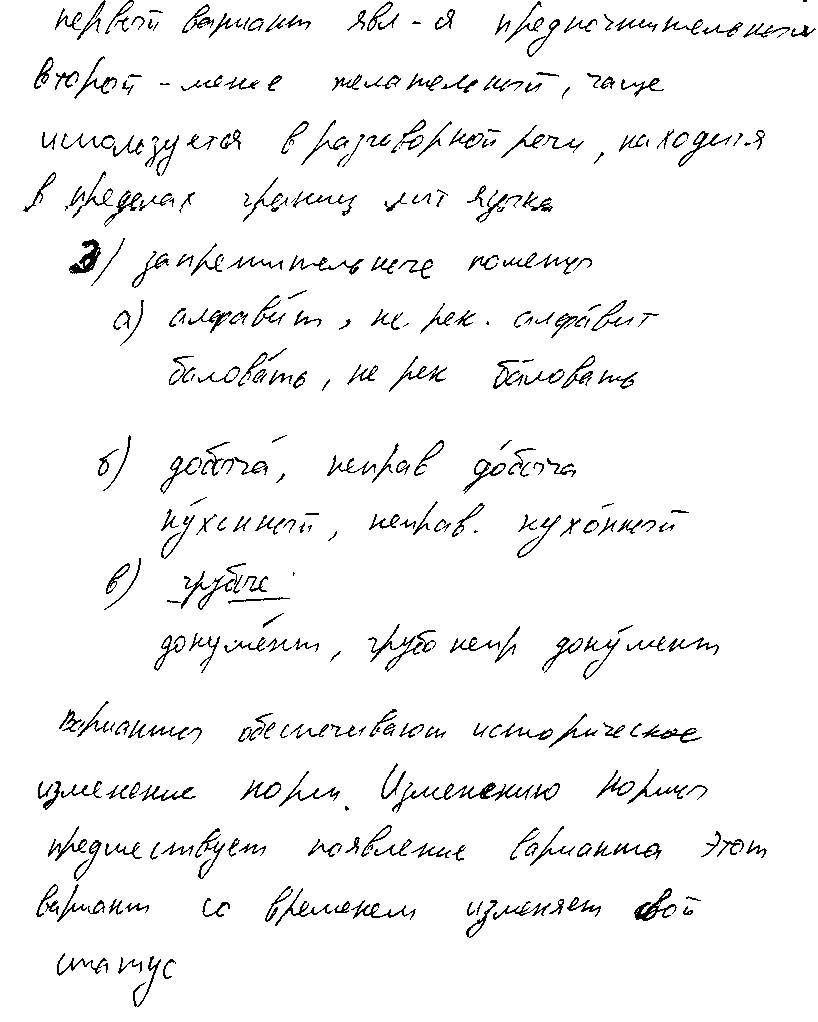 первый вариант явл-я предпочтительным
второй - менее желательный, чаще
используется в разговорной речи, находится
в пределах границ лит языка
3) запретительные пометы
а) алфави́т, не рек. алфа́вит
балова́ть, не рек ба́ловать
б) добыча́, неправ до́быча
ку́хонный, неправ. кухо́нный
в) грубые
докуме́нт, грубо непр доку́мент
Варианты обеспечивают историческое
изменение норм. Изменению нормы
предшествует появление варианта Этот
вариант со временем изменяет свой
статус